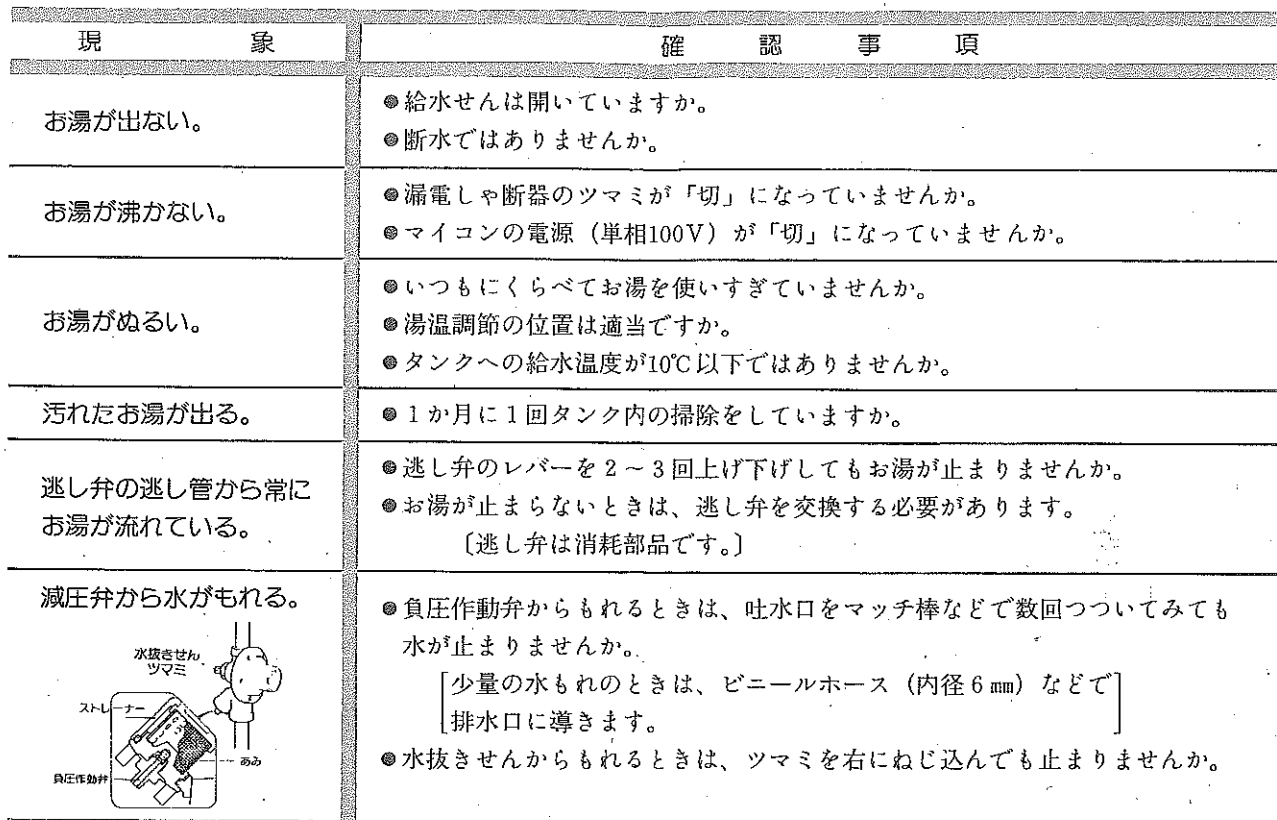 現象 確認事項
お湯が出ない。
●給水せんは開いていますか。
●断水ではありませんか。
お湯が沸かない。
●漏電しゃ断器のツマミが「切」になっていませんか。
●マイコンの電源(単相100V)が「切」になっていませんか。
お湯がぬるい。
●いつもにくらべてお湯を使いすぎていませんか。
●湯温調節の位置は適当ですか。
●タンクへの給水温度が10℃以下ではありませんか。
汚れたお湯が出る。
●1か月に1回タンク内の掃除をしていますか。
逃し弁の逃し管から常に
お湯が流れている。
●逃し弁のレバーを2~3回上げ下げしてもお湯が止まりませんか。
●お湯が止まらないときは、逃し弁を交換する必要があります。
〔逃し弁は消耗部品です。〕
減圧弁から水がもれる。
水抜きせん
ツマミ
ストレーナー
あみ
負圧作動弁
●負圧作動弁からもれるときは、吐水口をマッチ棒などで数回つついてみても
水が止まりませんか。
[少量の水もれのときは、ビニールホース(内径6㎜)などで
排水口に導きます。]
●水抜きせんからもれるときは、ツマミを右にねじ込んでも止まりませんか。